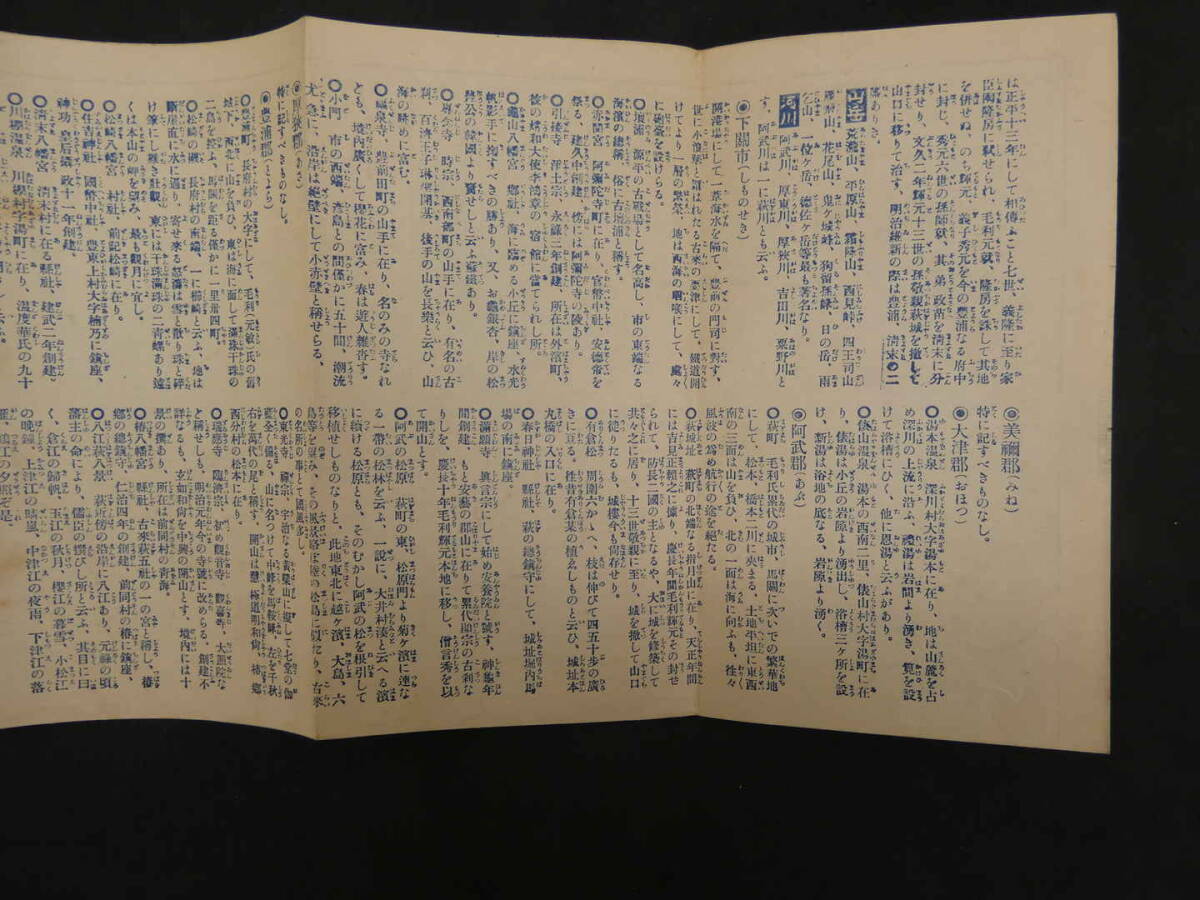 は正平十三年にして相傳ふこと七世、義隆に至り家
臣陶隆房に弑せられ、毛利元就、隆房を誅して其地
を併せぬ、のち輝元、義子秀元を今の豊浦なる府中
に封じ、秀元六世の孫師就、其弟政苗を清末に分
封せり、文久二年輝元十三世の孫敬親萩城を撤して
山口に移りて治す、明治維新の際は豊浦、清末の二
藩ありき。
山岳 荒瀧山、平原山、霜降山、西見峠、四王司山
花尾山、鬼ケ城峰、狗留孫峰、日の岳、雨
乞山、一位ケ岳、德佐ケ岳等最も著名なり。
河川 阿武川、厚東川、厚狹川、吉田川、粟野川と
す。阿武川は一に萩川とも云ふ。
◉下關市(しものせき)
開港場にして一葦海水を隔て、豊前の門司に對す、
世に小浪華と謂はれたる古來の要津にして、鐵道開
けてより一層の繁榮、地は西海の咽喉にして、處々
に砲臺を設けらる。
◎壇浦 源平の古戰場として名高し、市の東端なる
海濱の總稱、俗に古壇浦と稱す。
◎赤間宮 阿彌陀寺町に在り、官幣中社、安德帝を
祭る、建久中創建、傍には阿彌陀寺の陵あり。
◎引接寺 淨土宗、永祿三年創建、所在は外濱町、
彼の媾和大使李鴻章の宿館に當てられし所
◎龜山八幡宮 鄕社、海に臨める小丘に鎭座、水光
帆影手に掬すべきの勝あり、又、お龜銀杏、岸の松
時宗、西南部町の山手に在り、有名の古
刹、百濟王子琳聖開基、後手の山を長樂と云ひ、山
海の眺めに富む。
◎福泉寺 豊前田町の山手に在り、名のみの寺なれ
ども、境内廣くして櫻花に富み、春は遊人雜沓す。
◎小門 市の西端、彦島との間僅かに五十間、潮流
尤急に、沿岸は絶壁にして小赤壁と稱せらる、
◉厚狹郡(あさ)
特に記すべきものなし。
◉豊浦郡(とよら)
◎豊浦町 長府村の大字にして、毛利(元敏)氏の舊
城下、西北に山を負ひ、東は海に面して滿珠干珠の
二島を控ふ、馬關を距る僅かに一里卅四町。
◎松崎の磯 長府村の南端、一に櫛崎と云ふ、地は
斷崖直に水に逼り、寄せ來る怒濤は雪と散り珠と碎
け、筆にし難き壯觀、東には珠滿珠の二靑螺あり遠
くは本山の岬を望み、最も觀月に宜し。
◎松崎八幡宮 村社、前記松崎に在り。
◎住吉神社 國幣中社、豊東上村大字楠乃に鎭座、
神功皇后攝政十一年創建。
◎淸末八幡宮 淸末村に在る縣社、建武二年創建。
◎川棚溫泉 川棚村字湯町に在り、溫度華氏の九十
◉美禰郡(みね)
特に記すべきものなし。
◉大津郡(おほつ)
◎湯本溫泉 深川村大字湯本に在り、地は山麓を占
め深川の上流に沿ふ、禮湯は岩間より湧き、筧を設
けて浴槽にひく、他に恩湯と云ふがあり。
◎俵山溫泉 湯本の西南二里、俵山村大字湯町に在
り、俵湯は小丘の岩隙より湧き出し、浴槽三ケ所を設
け、新湯は浴地の底なる、岩隙より湧く。
◉阿武郡(あぶ)
◎萩町 毛利氏累代の城市、馬關に次いでの繁華地
にして、松本、橋本二川に夾まる、土地平坦に東西
南の三面は山を負ひ、北の一面は海に向ふも、往々
風波の爲め航行の途を絶たる。
◎萩城址 萩町の北端なる指月山に在り、天正年間
には吉見正賴之に據り、慶長年間毛利輝元その封せ
られて、防長二國の主となるや、大に城を修築して
共々之に居り、十三世敬親に至り、城を撤して山口
に徙りたるも、城櫓今も尙存せり。
◎有倉松 周圍六かゝへ、枝は伸びて四五十步の廣
きに亘る、往昔有倉某の植ゑしものと云ひ、城址本
丸橋の入口に在り。
◎春日神社 縣社、萩の總鎭守にして、城址堀内馬
場の南に鎭座。
◎滿願寺 眞言宗にして始め安養院と號す、神龜年
間創建、もと安藝の郡山に在りて累代勅宗の古刹な
りしを、慶長十年毛利輝元本地に移し、僧言秀を以
て開山とす。
◎阿武の松原 萩町の東、松原門より菊ケ濱に連な
る一帶の松林を云ふ、一說に、大井村湊と云へる濱
に續ける松原とも、そのむかし阿武の松を根引して
移植せしものなりと、此地東北に越ケ濱、大島、六
島等を望み、その風景略ぼ陸の松島に似たり、古來
の名所の事とて國風多し。
◎東光寺 禪宗、宇治なる黃檗山に擬して七堂の伽
藍全く備はる、山に名づけて中峰を馬鞍峰、左を千秋
右を萬代の尾と稱す、開山は慧極道明和尙、椿鄕
西分村の松本に在り。
◎瑞應寺 臨濟宗、初め觀音寺、觀喜寺、大照院な
ど稱せしも、明治三年今の寺號に改めらる、創建不
詳なるも、立如和尙を中興の開山とす、境内には十
景の撰あり、所在は前同村の靑海。
◎椿八幡宮 縣社、古來萩五社の一の宮と稱し、椿
鄕の總鎭守、仁治四年の創建、前同村の椿に鎭座。
◎八江萩八景 萩近傍の沿岸に八江あり、元祿の頃
藩主の命により、儒臣の撰びし所と云ふ、其目に曰
く、倉江の歸帆、玉江の秋月、櫻江の暮雪、小松江
の晩鐘、上津江の晴嵐、中津江の夜雨、下津江の落
雁、鶴江の夕照ぞ是。